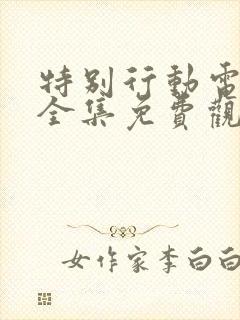 特別行動電
全集免費觀
女作家李白白